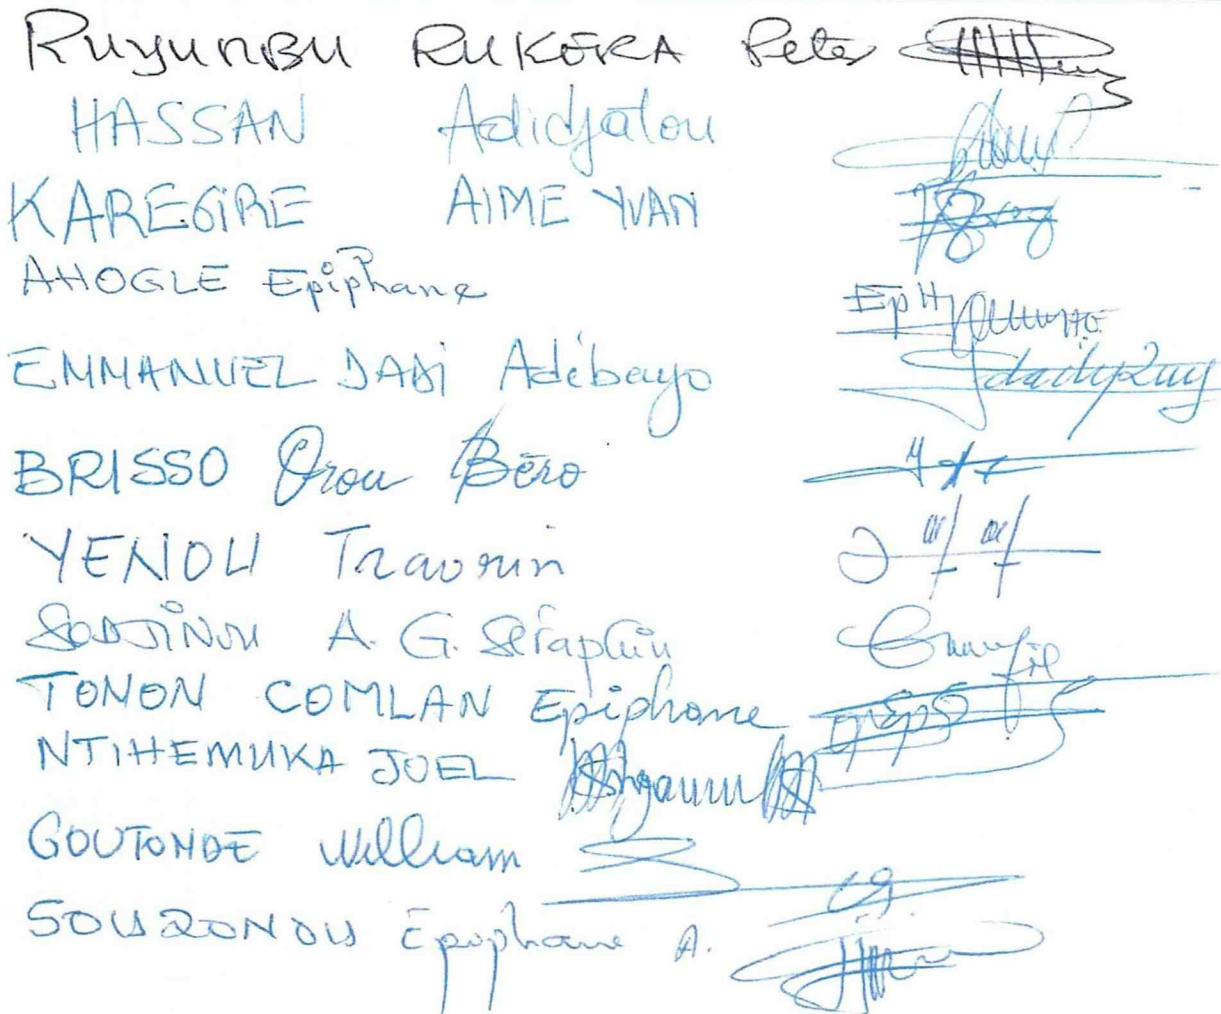 Ruyumbu RUKERA Peter
HASSAN Adidjatou
KAREGIRE AIME YVAN
AHOGLE Epiphane
EpH
EMMANUEL DADI Adébayo
BRISSO Orou Béro
YENOU Travorin
SODJINOU A. G. Séraphin
TONON COMLAN Epiphane
NTIHEMUKA JOEL
GOUTONDE William
SOUZONOU Epiphane A.